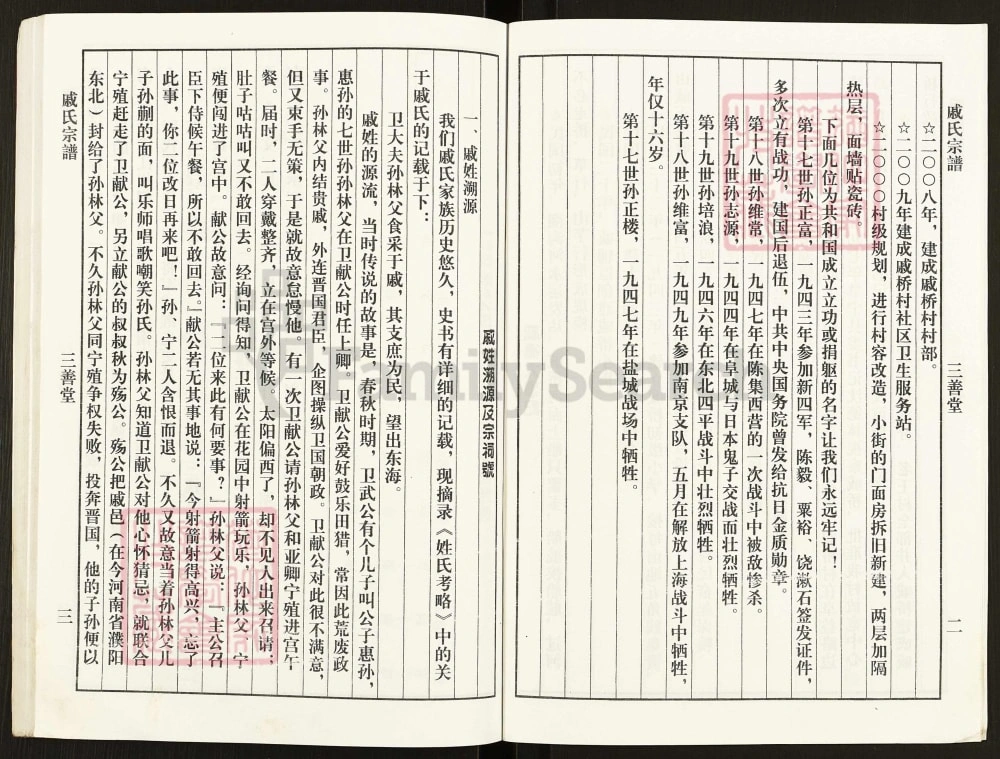 戚氏宗譜
三善堂
二
☆二〇〇八年，建成戚桥村村部。
☆二〇〇九年建成戚桥村社区卫生服务站。
☆二〇〇〇村级规划，进行村容改造，小街的门面房拆旧新建，两层加隔
热层，面墙贴瓷砖。
下面几位为共和国成立立功或捐躯的名字让我们永远牢记！
第十七世孙正富，一九四三年参加新四军，陈毅、粟裕、饶漱石签发证件，
多次立有战功，建国后退伍，中共中央国务院曾发给抗日金质勋章。
第十八世孙维常，一九四七年在陈集西营的一次战斗中被敌惨杀。
第十九世孙志源，一九四四年在阜城与日本鬼子交战而壮烈牺牲。
第十九世孙培浪，一九四六年在东北四平战斗中壮烈牺牲。
第十八世孙维富，一九四九年参加南京支队，五月在解放上海战斗中牺牲，
年仅十六岁。
第十七世孙正楼，一九四七年在盐城战场中牺牲。
戚姓溯源及宗祠號
一、戚姓溯源
我们戚氏家族历史悠久，史书有详细的记载，现摘录《姓氏考略》中的关
于戚氏的记载于下：
卫大夫孙林父食采于戚，其支庶为民，望出东海。
戚姓的源流，当时传说的故事是，春秋时期，卫武公有个儿子叫公子惠孙，
惠孙的七世孙孙林父在卫献公时任上卿。卫献公爱好鼓乐田猎，常因此荒废政
事。孙林父内结贵戚，外连晋国君臣，企图操纵卫国朝政。卫献公对此很不满意，
但又束手无策，于是就故意怠慢他。有一次卫献公请孙林父和亚卿宁殖进宫午
餐。届时，二人穿戴整齐，立在宫外等候。太阳偏西了，却不见人出来召请；
肚子咕咕叫又不敢回去。经询问得知，卫献公在花园中射箭玩乐，孙林父、宁
殖便闯进了宫中。献公故意问：“二位来此有何要事？”孙林父说：“主公召
臣下侍候午餐，所以不敢回去。”献公若无其事地说：“今射箭射得高兴，忘了
此事，你二位改日再来吧！”孙、宁二人含恨而退。不久又故意当着孙林父儿
子孙蒯的面，叫乐师唱歌嘲笑孙氏。孙林父知道卫献公对他心怀猜忌，就联合
宁殖赶走了卫献公，另立献公的叔叔秋为殇公。殇公把戚邑（在今河南省濮阳
东北）封给了孙林父。不久孙林父同宁殖争权失败，投奔晋国，他的子孙便以
戚氏宗譜
三善堂
三
FamilySearch